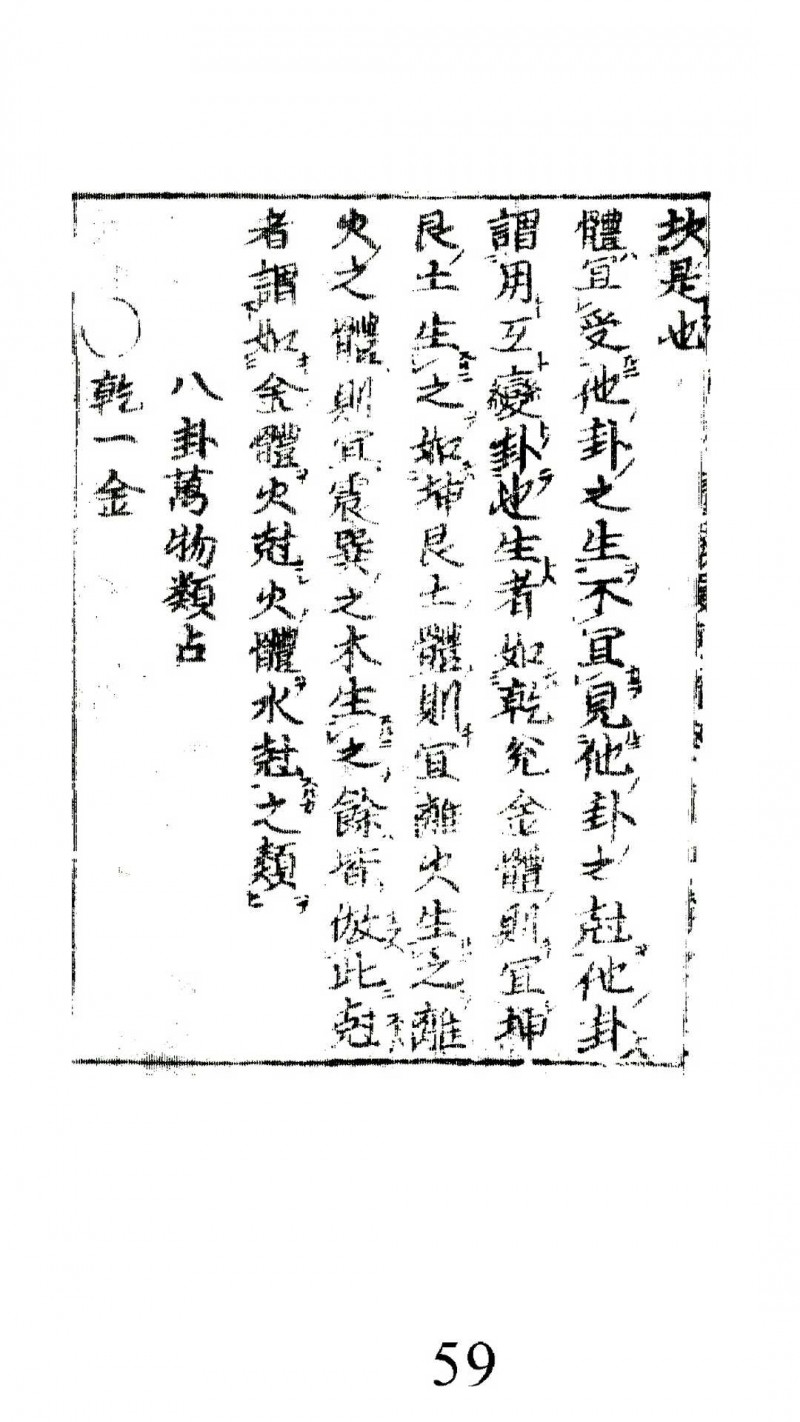 坎是也
體宜受他卦之生不宜見他卦之尅他卦
謂用互變卦也生者如乾兊金體則宜坤
艮土生之如坤艮土體則宜離火生之離
火之體則宜震巽之木生之餘皆倣此尅
者謂如金體火尅火體水尅之類
八卦萬物類占
○
乾一金
59